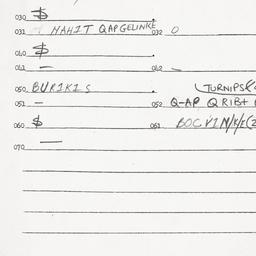 030 $ .
031 HAHIT QAPGELINKE 032 0
040 $ .
041 — 042 —
050 BURIKIS . TURNIPS
051 — 052 Q-AP QRIBT
060 $ . 061 BOCVIM/K/E(2
070 —